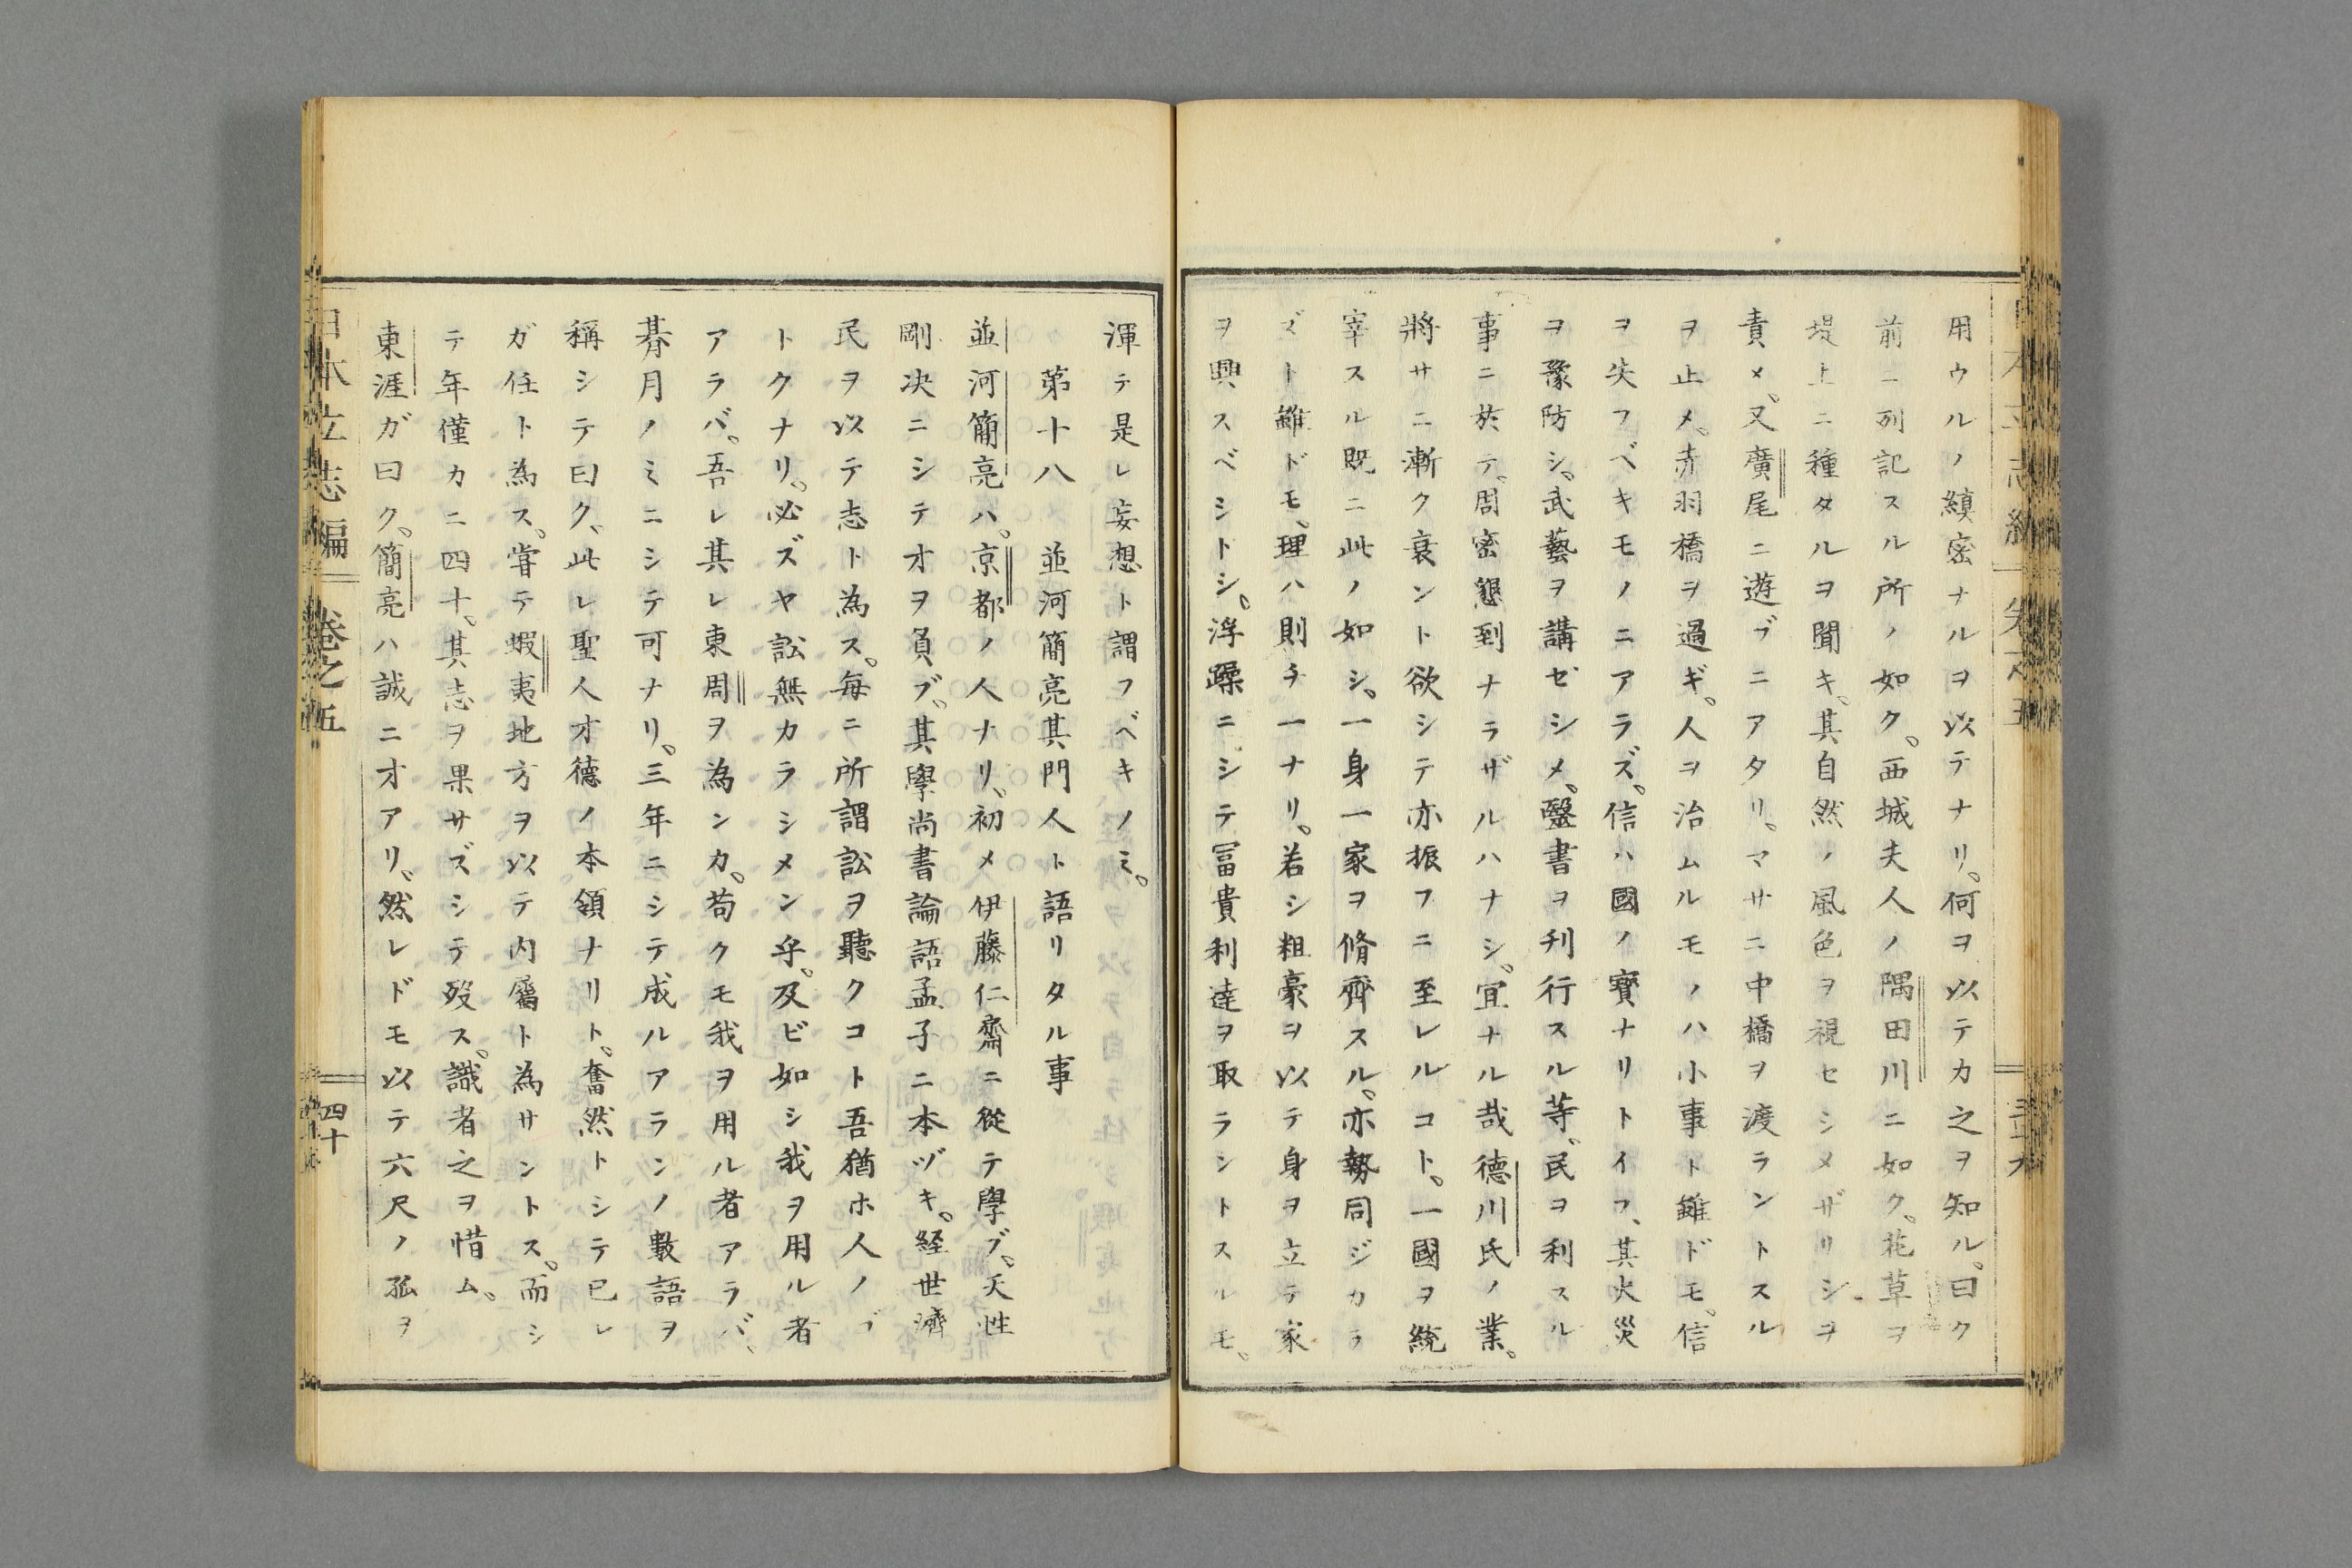 用ウルノ縝密ナルヲ以テナリ。何ヲ以テカ之ヲ知ル。曰ク
前ニ列記スル所ノ如ク。西城夫人ノ隅田川ニ如ク。花草ヲ
堤上ニ種タルヲ聞キ。其自然ノ風色ヲ視セシメザリシヲ
責メ、又廣尾ニ遊ブニアタリ。マサニ中橋ヲ渡ラントスル
ヲ止メ、赤羽橋ヲ過ギ。人ヲ治ムルモノハ小事ト雖ドモ。信
ヲ失フベキモノニアラズ。信ハ國ノ寳ナリトイフ、其火災
ヲ豫防シ。武藝ヲ講ゼシメ。醫書ヲ刋行スル等。民ヲ利スル
事ニ於テ。周密懇到ナラザルハナシ。宜ナル哉德川氏ノ業。
將サニ漸ク衰ント欲シテ亦振フニ至レルコト。一國ヲ統
宰スル既ニ此ノ如シ。一身一家ヲ脩齊スル。亦勢同ジカラ
ズト雖ドモ、理ハ則チ一ナリ。若シ粗豪ヲ以テ身ヲ立テ家
ヲ興スベシトシ。浮躁ニシテ冨貴利達ヲ取ラントスルモ。
渾テ是レ妄想ト謂フベキノミ。
第十八 並河簡亮其門人ト語リタル事
並河簡亮ハ。京都ノ人ナリ、初メ伊藤仁齋ニ從テ學ブ。天性
剛决ニシテオヲ負ブ。其學尚書論語孟子ニ本ヅキ。経世濟
民ヲ以テ志ト為ス。毎ニ所謂訟ヲ聽クコト吾猶ホ人ノゴ
トクナリ。必ズヤ訟無カラシメン乎。及ビ如シ我ヲ用ル者
アラバ。吾レ其レ東周ヲ為ンカ。苟クモ我ヲ用ル者アラバ、
朞月ノミニシテ可ナリ。三年ニシテ成ルアランノ數語ヲ
稱シテ曰ク、此レ聖人才德ノ本領ナリト。奮然トシテ已レ
ガ任ト為ス。甞テ蝦夷地方ヲ以テ内屬ト為サントス。而シ
テ年僅カニ四十。其志ヲ果サズシテ歿ス。識者之ヲ惜ム。
東涯ガ曰ク。簡亮ハ誠ニオアリ。然レドモ以テ六尺ノ孤ヲ
日本立志編 卷之五 四十